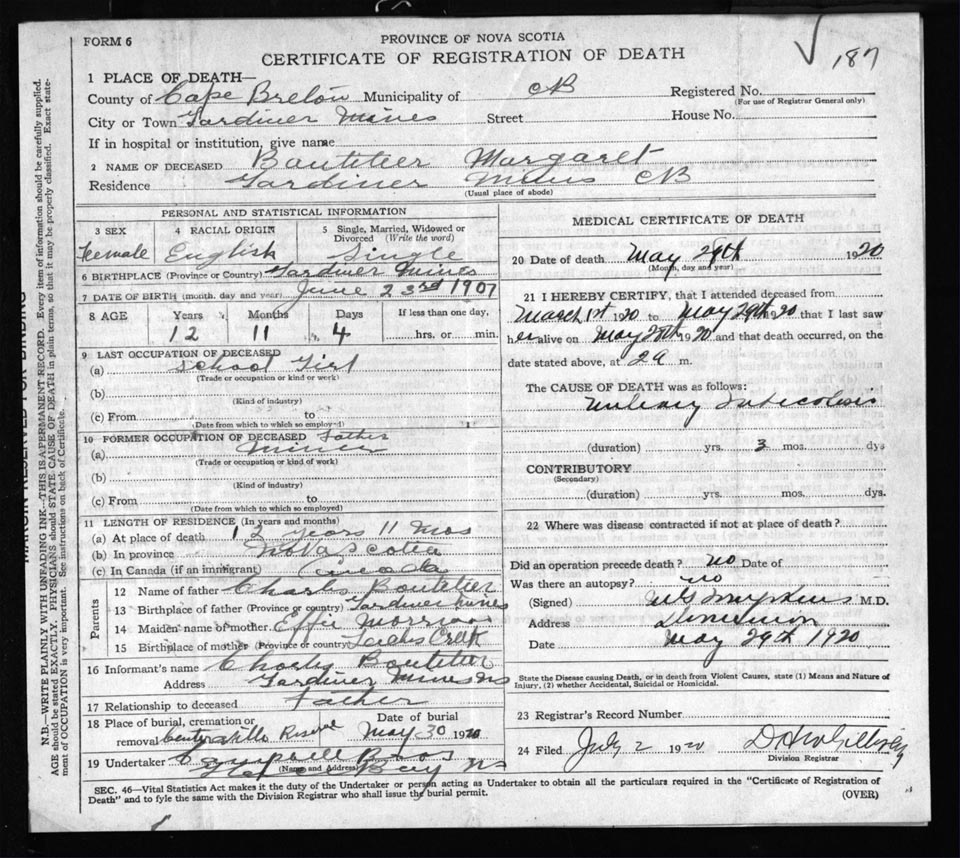 FORM 6
PROVINCE OF NOVA SCOTIA
CERTIFICATE OF REGISTRATION OF DEATH
187
1 PLACE OF DEATH—
County of Cape Breton Municipality of CB Registered No.
(For use of Registrar General only)
City or Town Gardiner Mines Street House No.
If in hospital or institution, give name
2 NAME OF DECEASED Boutilier Margaret
Residence Gardiner Mines CB
(Usual place of abode)
PERSONAL AND STATISTICAL INFORMATION
3 SEX 4 RACIAL ORIGIN 5 Single, Married, Widowed or
Divorced (Write the word)
Female English Single
6 BIRTHPLACE (Province or Country) Gardiner Mines
7 DATE OF BIRTH (month, day and year) June 23rd 1907
8 AGE Years Months Days If less than one day,
12 11 4 hrs. or min.
9 LAST OCCUPATION OF DECEASED
(a) School Girl
(Trade or occupation or kind or work)
(b)
(Kind of industry)
(c) From to
(Date from which to which so employed)
10 FORMER OCCUPATION OF DECEASED Father
(a) Miner
(Trade or occupation or kind of work)
(b)
(Kind of industry)
(c) From to
(Date from which to which so employed)
11 LENGTH OF RESIDENCE (In years and months)
(a) At place of death 12 years 11 Mos
(b) In province Nova Scotia
(c) In Canada (if an immigrant) Canada
Parents
12 Name of father Charles Boutilier
13 Birthplace of father (Province or country) Gardiner Mines
14 Maiden name of mother Effie Morrison
15 Birthplace of mother (Province or country) Creek
16 Informant's name Charles Boutilier
Address Gardiner Mines NS
17 Relationship to deceased Father
18 Place of burial, cremation or Date of burial
removal May 30 1920
19 Undertaker Bros
(Name and Address) Bay NS
MEDICAL CERTIFICATE OF DEATH
20 Date of death May 29th 1920
(Month, day and year)
21 I HEREBY CERTIFY, that I attended deceased from
March 1st 1920 to May 29th 1920 that I last saw
her alive on May 28th 1920 and that death occurred, on the
date stated above, at 2 a m.
The CAUSE OF DEATH was as follows:
Miliary Tuberculosis
(duration) yrs. 3 mos. dys
CONTRIBUTORY
(Secondary)
(duration) yrs. mos. dys.
22 Where was disease contracted if not at place of death?
Did an operation precede death? no Date of
Was there an autopsy? no
(Signed) M.D.
Address Dominion
Date May 29th 1920
State the Disease causing Death, or in death from Violent Causes, state (1) Means and Nature of
Injury, (2) whether Accidental, Suicidal or Homicidal.
23 Registrar's Record Number
24 Filed July 2 1920
Division Registrar
SEC. 46—Vital Statistics Act makes it the duty of the Undertaker or person acting as Undertaker to obtain all the particulars required in the "Certificate of Registration of
Death" and to fyle the same with the Division Registrar who shall issue the burial permit.
(OVER)
MARGIN RESERVED FOR BINDING
N.B.—WRITE PLAINLY WITH UNFADING INK—THIS IS A PERMANENT RECORD. Every item of information should be carefully supplied.
AGE should be stated EXACTLY. PHYSICIANS should STATE CAUSE OF DEATH in plain terms, so that it may be properly classified. Exact state-
ment of OCCUPATION is very important. See instructions on back of Certificate.